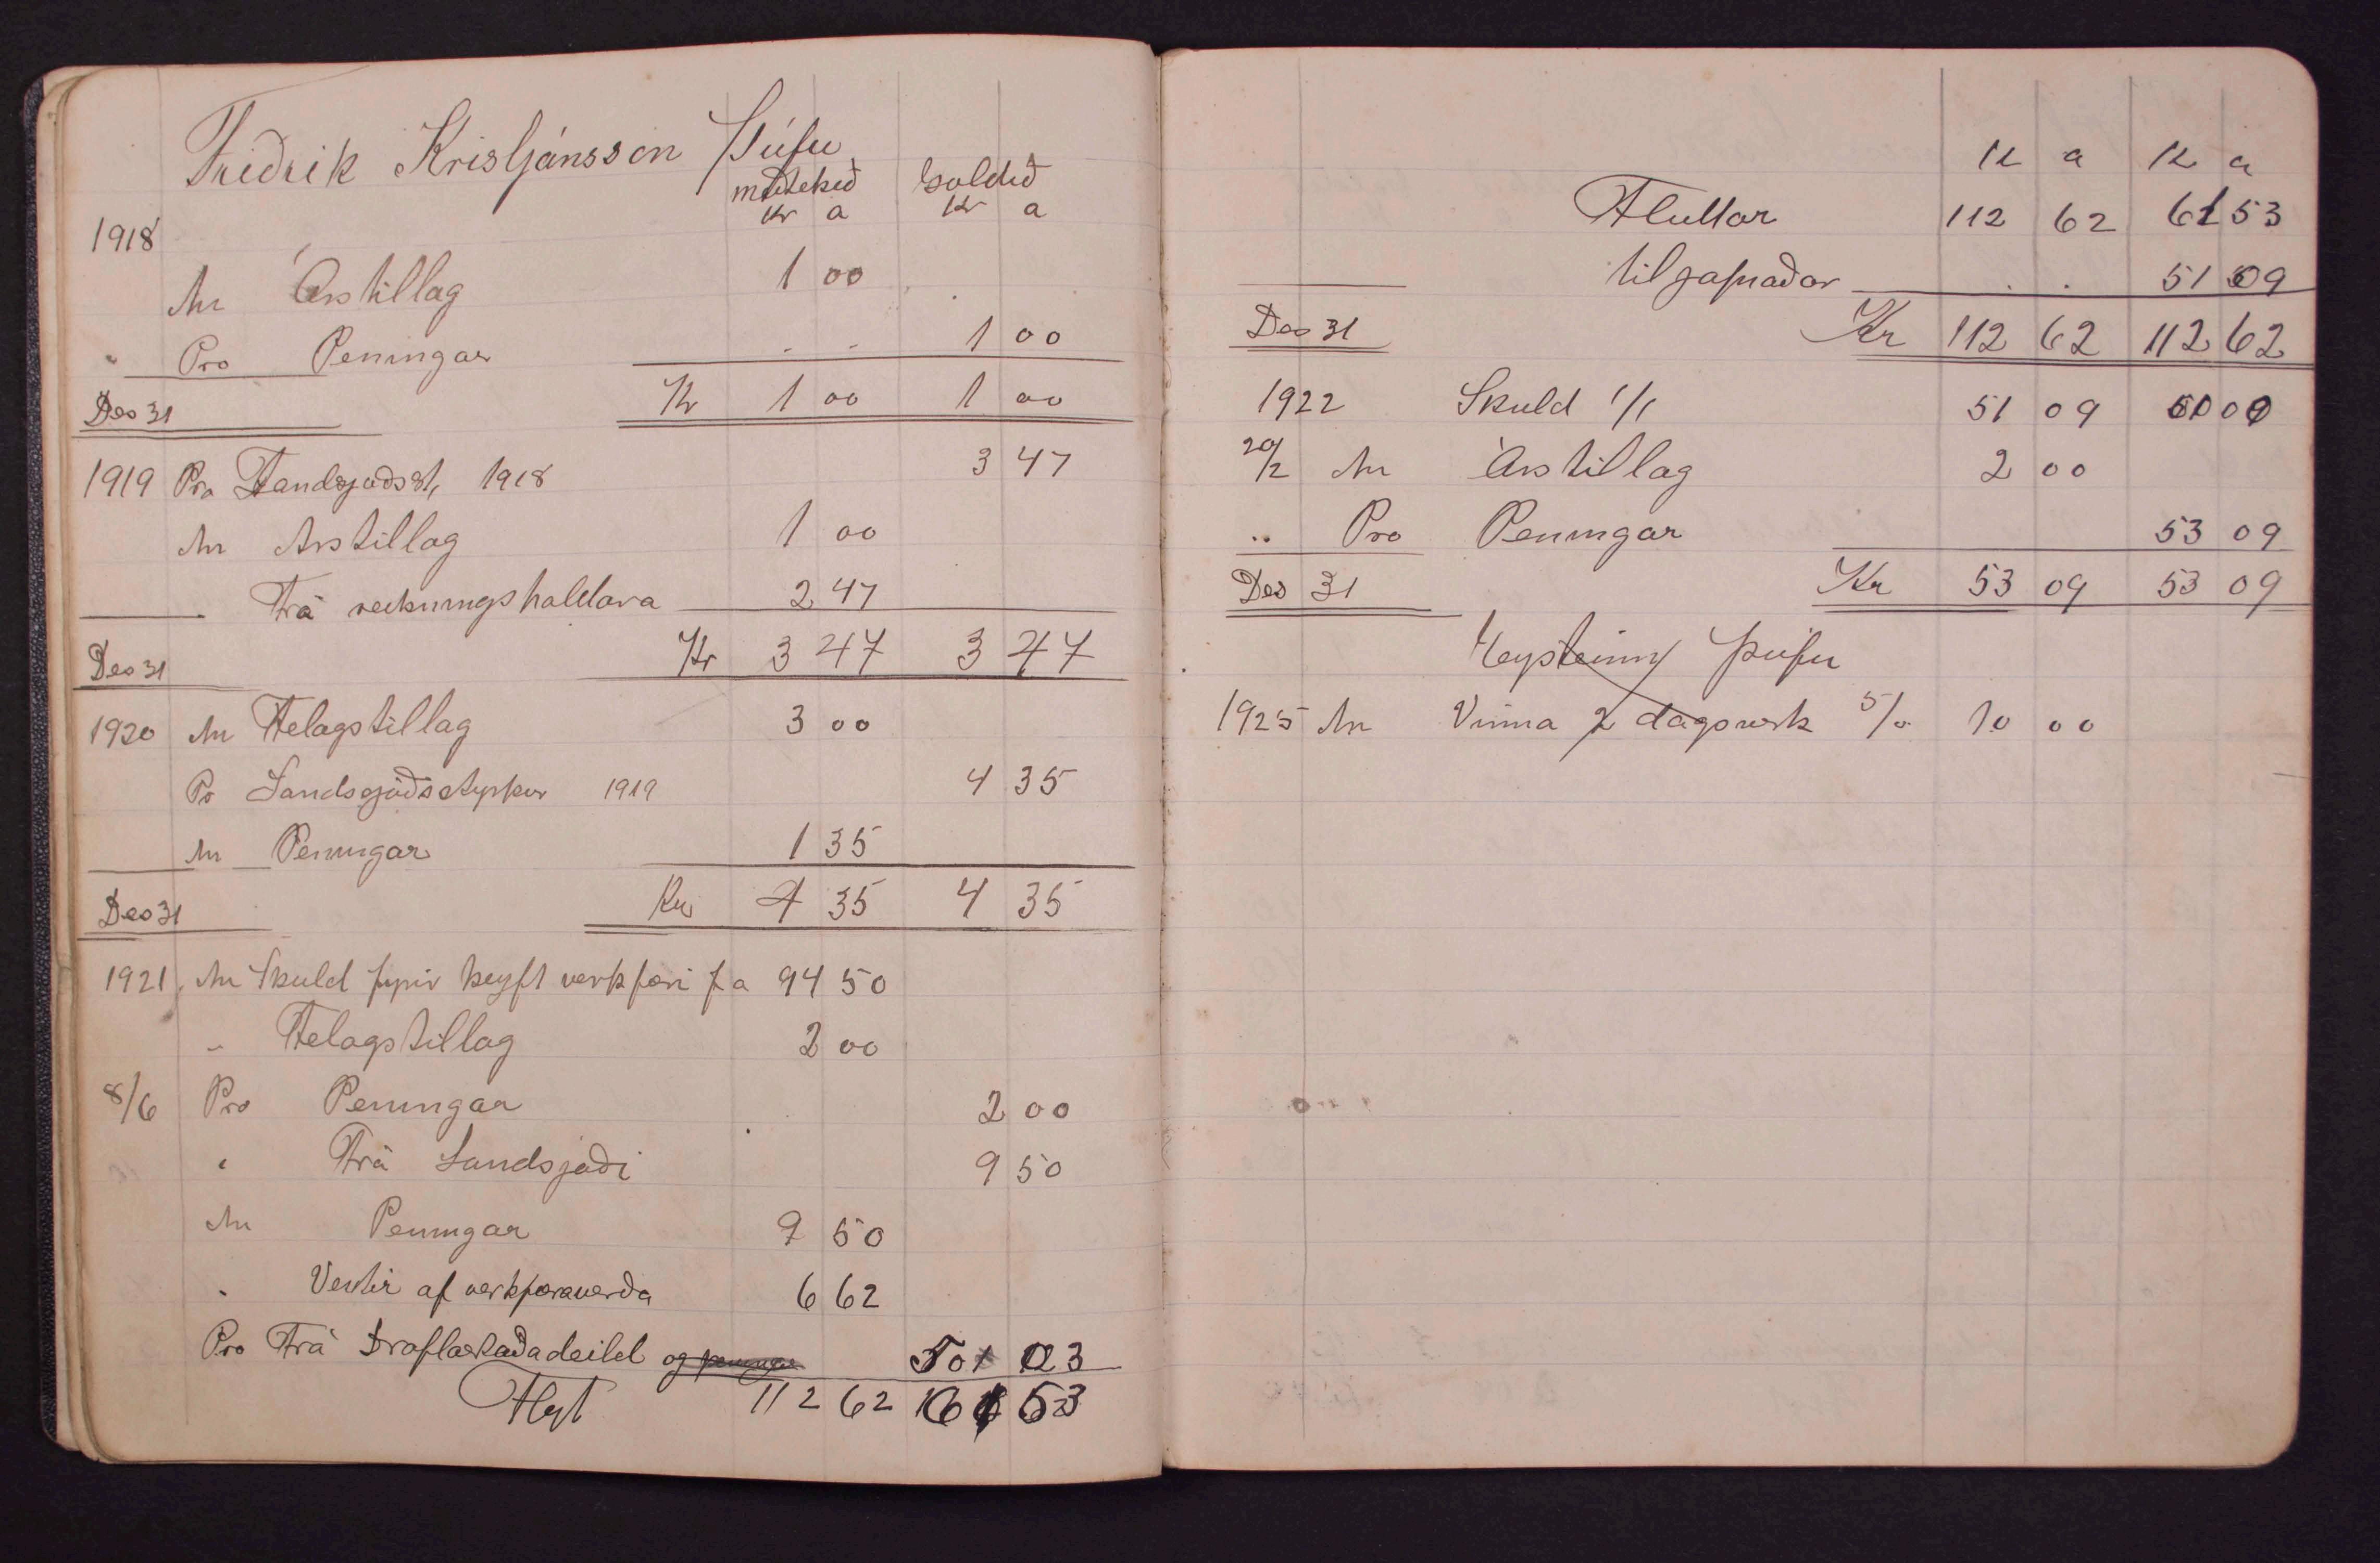 Friðrik Kristjánsson Þúfu
móttekið goldið
Kr a Kr a
1918
An Árstillag 1 00
" Pro Peningar 1 00
Des 31 Kr 1 00 1 00
1919 Pro Landsjóðsst, 1918 3 47
An Arstillag 1 00
Frá reikningshaldara 2 47
Des 31 Kr 3 47 3 47
1920 An Felagstillag 3 00
Pr Landsjóðsstyrkur 1919 4 35
An Peningar 1 35
Des 31 Kr 4 35 4 35
1921 An Skuld fyrir keyft verkfæri f a 94 50
" Felagstillag 2 00
8/6 Pro Peningar 2 00
" Frá Landsjóði 9 50
An Peningar 9 50
" Vextir af verkfæraverða 6 62
Pro Frá Draflastaðadeild og peningar 50 03
Flyt 112 62 61 53
K a K a
Fluttar 112 62 61 53
til jafnaðar 51 09
Des 31 Kr 112 62 112 62
1922 Skuld 1/1 51 09
20/2 An Árstillag 2 00
" Pro Peningar 53 09
Des 31 Kr 53 09 53 09
Eysteinn Þúfu
1925 An Vinna 2 dagsverk 5/0 10 00